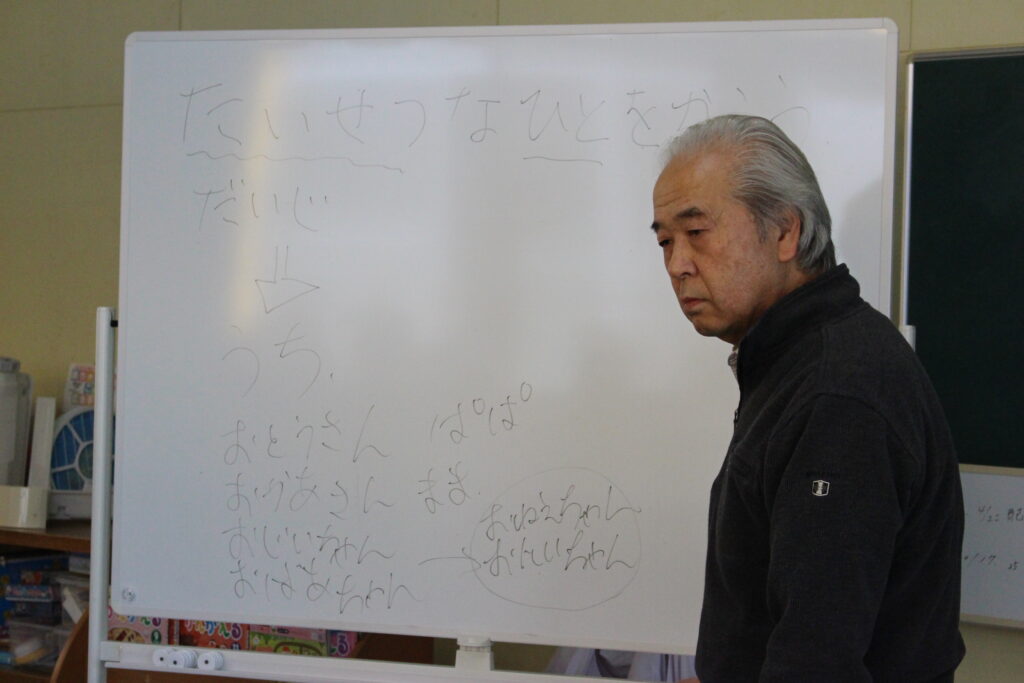 たいせつなひとをかこう
だいじ
うち.
おとうさん ぱぱ
おかあさん まま
おじいちゃん → おねえちゃん
おばあちゃん おにいちゃん